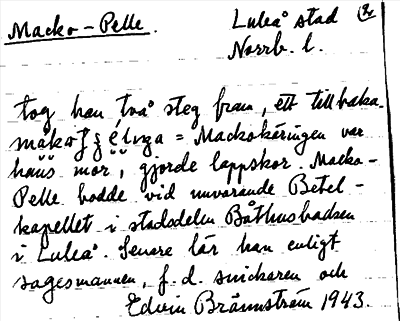 Macko-Pelle. Luleå stad 2
Norrb. l.
tog han två steg fram, ett tillbaka.
= Mackokäringen var
hans mor, gjorde lappskor. Macko-
Pelle bodde vid nuvarande Betel-
kapellet i stadsdelen Båthusbacken
i Luleå. Senare lär han enligt
sagesmannen, f.d. snickaren och
Edvin Brännström 1943.